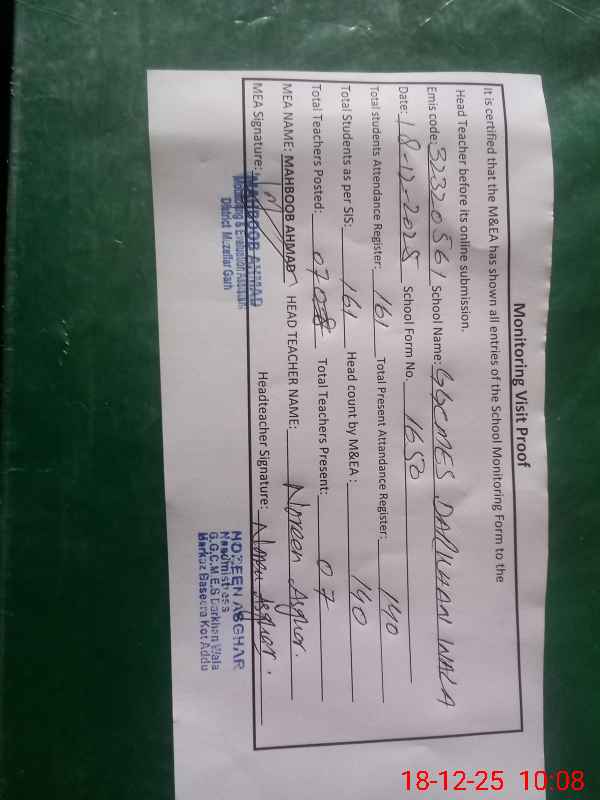 Monitoring Visit Proof
It is certified that the M&EA has shown all entries of the School Monitoring Form to the
Head Teacher before its online submission.
Emis code: 32320561 School Name: GGCMES DARKHAN WALA
Date: 18-12-2025 School Form No. 1650
Total students Attendance Register: 161 Total Present Attandance Register: 140
Total Students as per SIS: 161 Head count by M&EA : 140
Total Teachers Posted: 07 Total Teachers Present: 07
MEA NAME: MAHBOOB AHMAD HEAD TEACHER NAME: Noreen Asghar.
MEA Signature: Headteacher Signature: Noreen Asghar.
MAHBOOB AHMAD
Monitoring & Evaluation Assistant
District Muzaffar Garh
NOREEN ASGHAR
Headmistress
G.G.C.M.E.S Darkhan Wala
Markaz Baseera Kot Addu
18-12-25 10:08